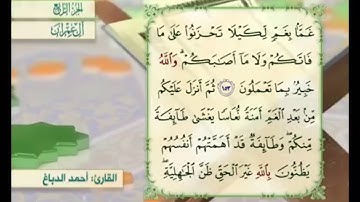 الجزء الرابع
آل عمران
غَمًّۢا بِغَمٍّ لِّكَيْلَا تَحْزَنُوا۟ عَلَىٰ مَا
فَاتَكُمْ وَلَا مَآ أَصَٰبَكُمْ ۗ وَٱللَّهُ
خَبِيرٌۢ بِمَا تَعْمَلُونَ ١٥٣ ثُمَّ أَنزَلَ عَلَيْكُم
مِّنۢ بَعْدِ ٱلْغَمِّ أَمَنَةً نُّعَاسًا يَغْشَىٰ طَآئِفَةً
مِّنكُمْ ۖ وَطَآئِفَةٌ قَدْ أَهَمَّتْهُمْ أَنفُسُهُمْ
يَظُنُّونَ بِٱللَّهِ غَيْرَ ٱلْحَقِّ ظَنَّ ٱلْجَٰهِلِيَّةِ ۖ
القارئ: أحمد الدباغ